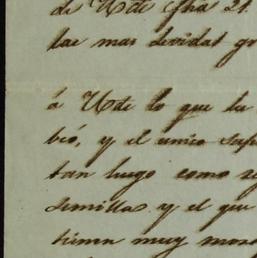 de Ude fha 21.
las mas devidas gr
á Ude lo que la
bió, y el unico
tan luego como se
semillas y el que
tienen muy